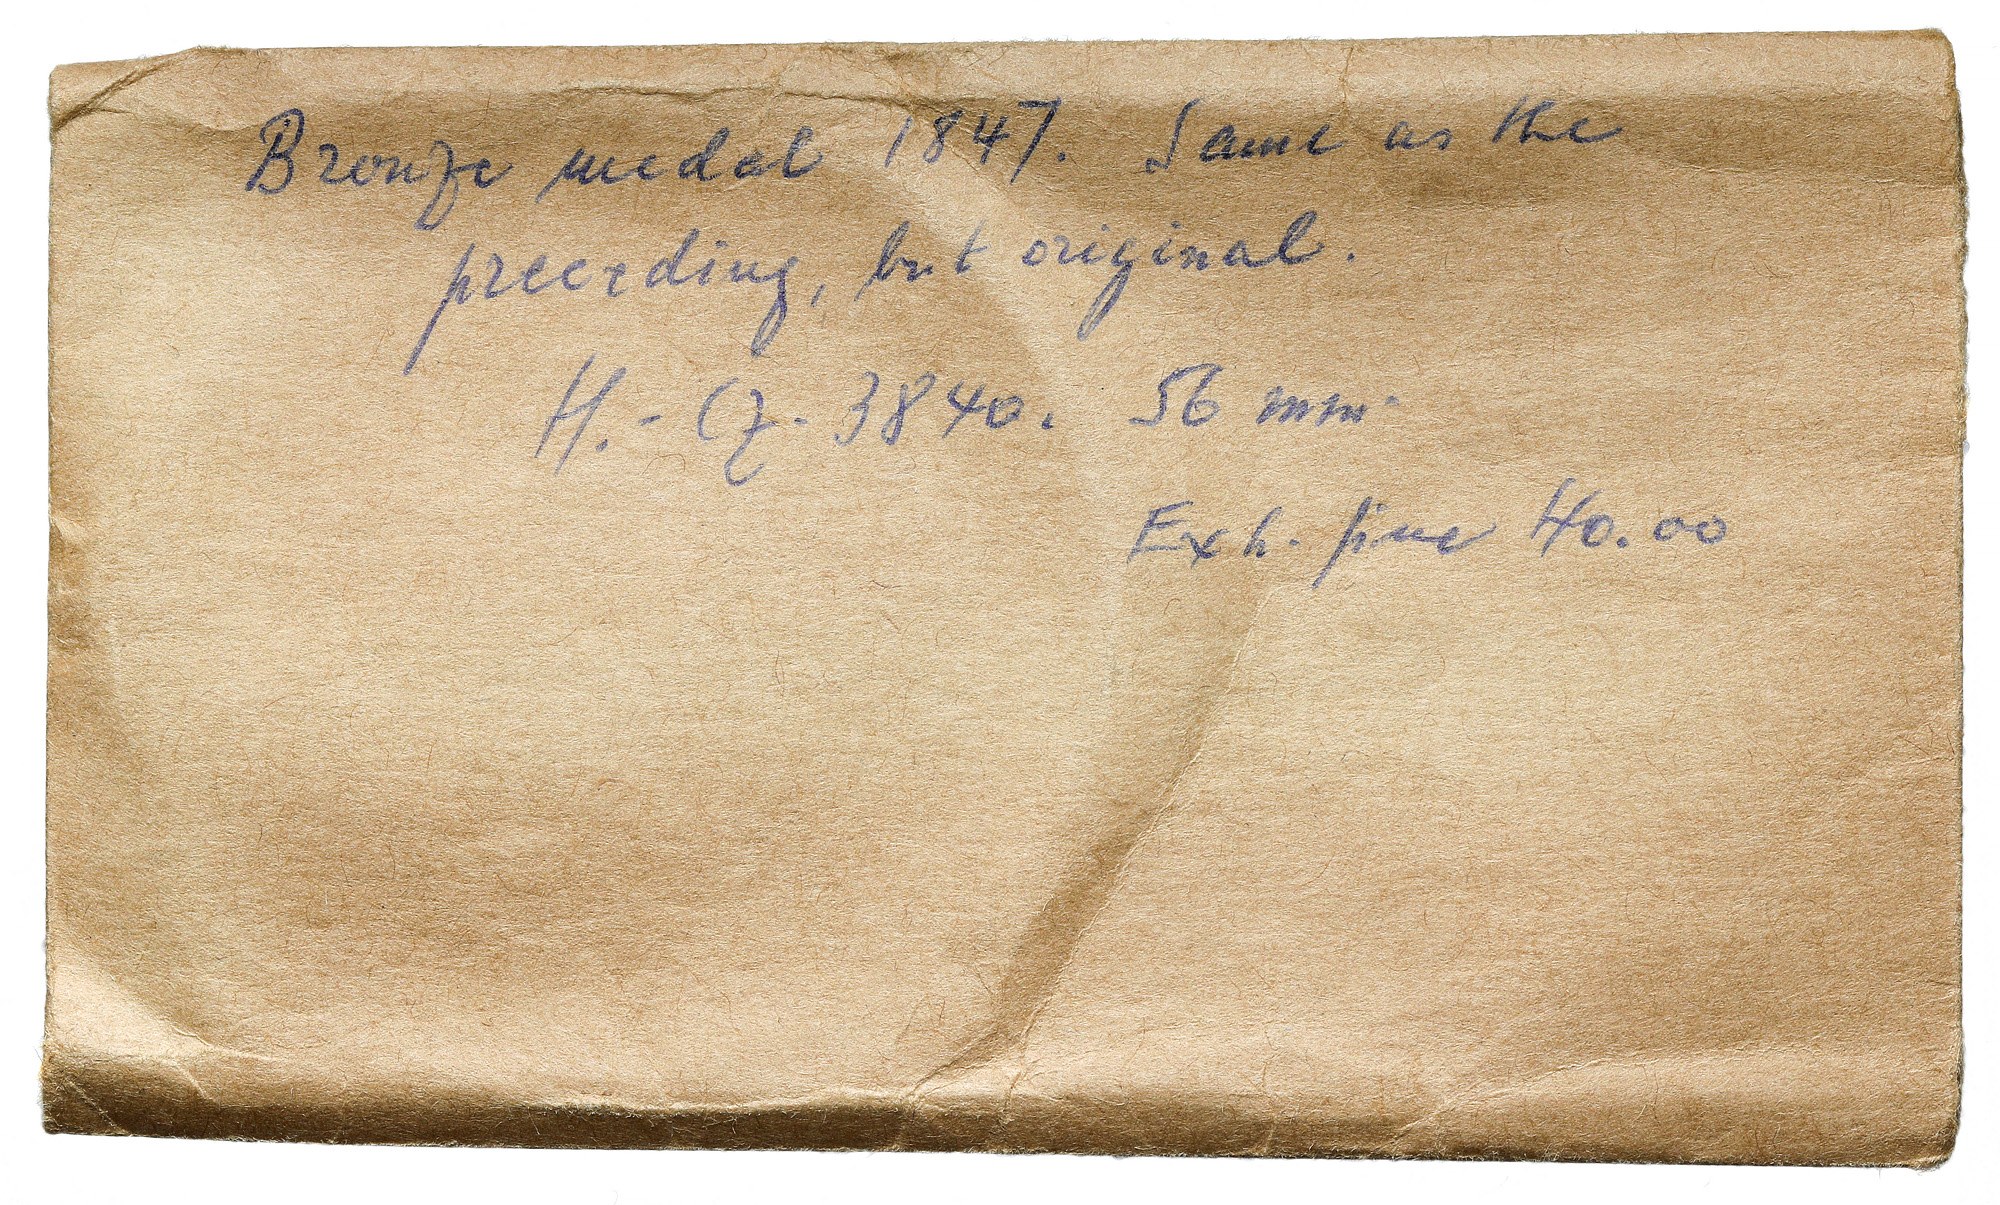 Bronze medal 1847. Same as the
preceding, but original.
H.-Cz. 3840. 56 mm.
Extr. fine 40.00